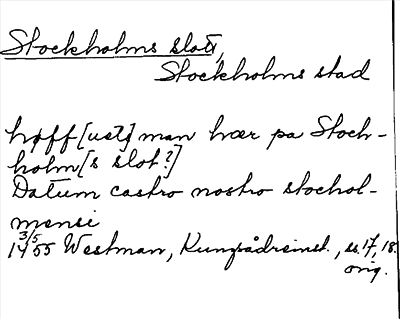 Stockholms slott,
Stockholms stad
høff[uetz]man hær pa Stock-
holm[s slot?]
Datum castro nostro stochol-
mensi
3/5
1455 Westman, Kungsådreinst., ss. 17, 18.
orig.